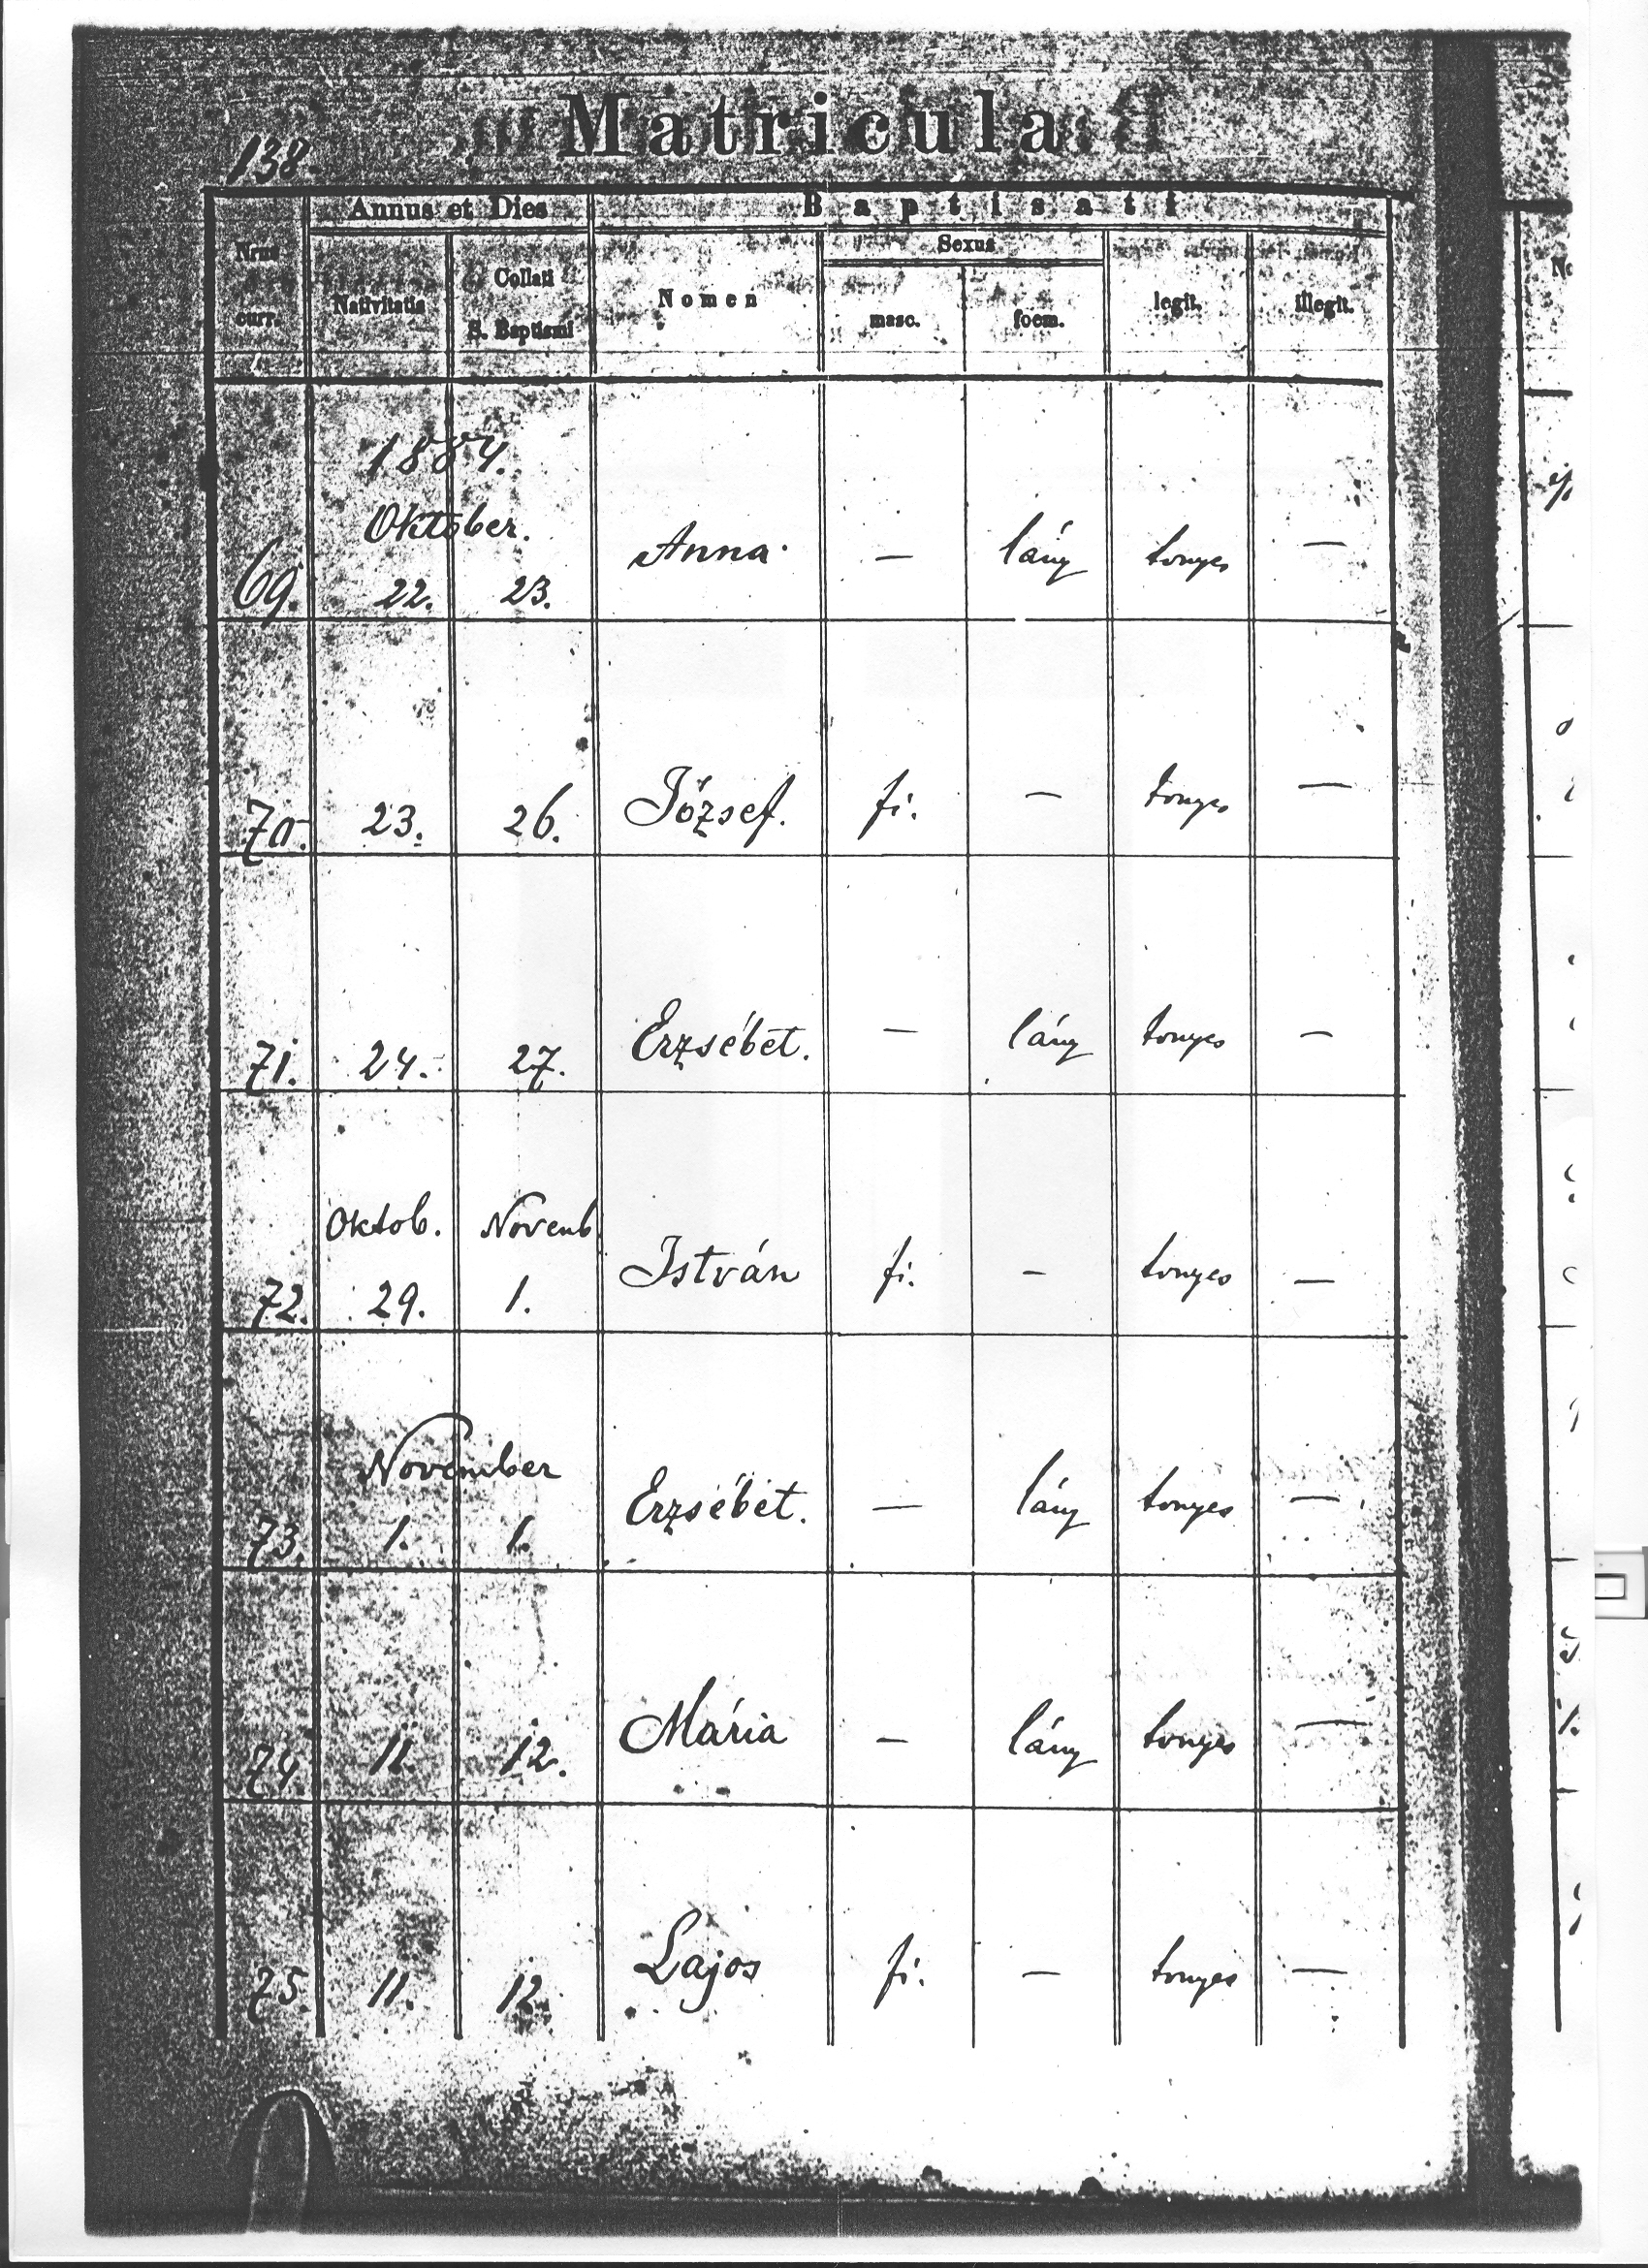 138.
Matricula
Annus et Dies
Baptisati
Nrus
curr.
Nativitatis
Collati
S. Baptismi
Nomen
Sexus
masc.
foem.
legit.
illegit.
1884.
Október.
69. 22. 23. Anna — lány tvnyes —
70. 23. 26. József. fi. — tvnyes —
71. 24. 27. Erzsébet. — lány tvnyes —
Oktob. Novemb
72. 29. 1. István fi. — tvnyes —
November
73. 1. 1. Erzsébet. — lány tvnyes —
74. 11. 12. Mária — lány tvnyes —
75. 11. 12. Lajos fi. — tvnyes —